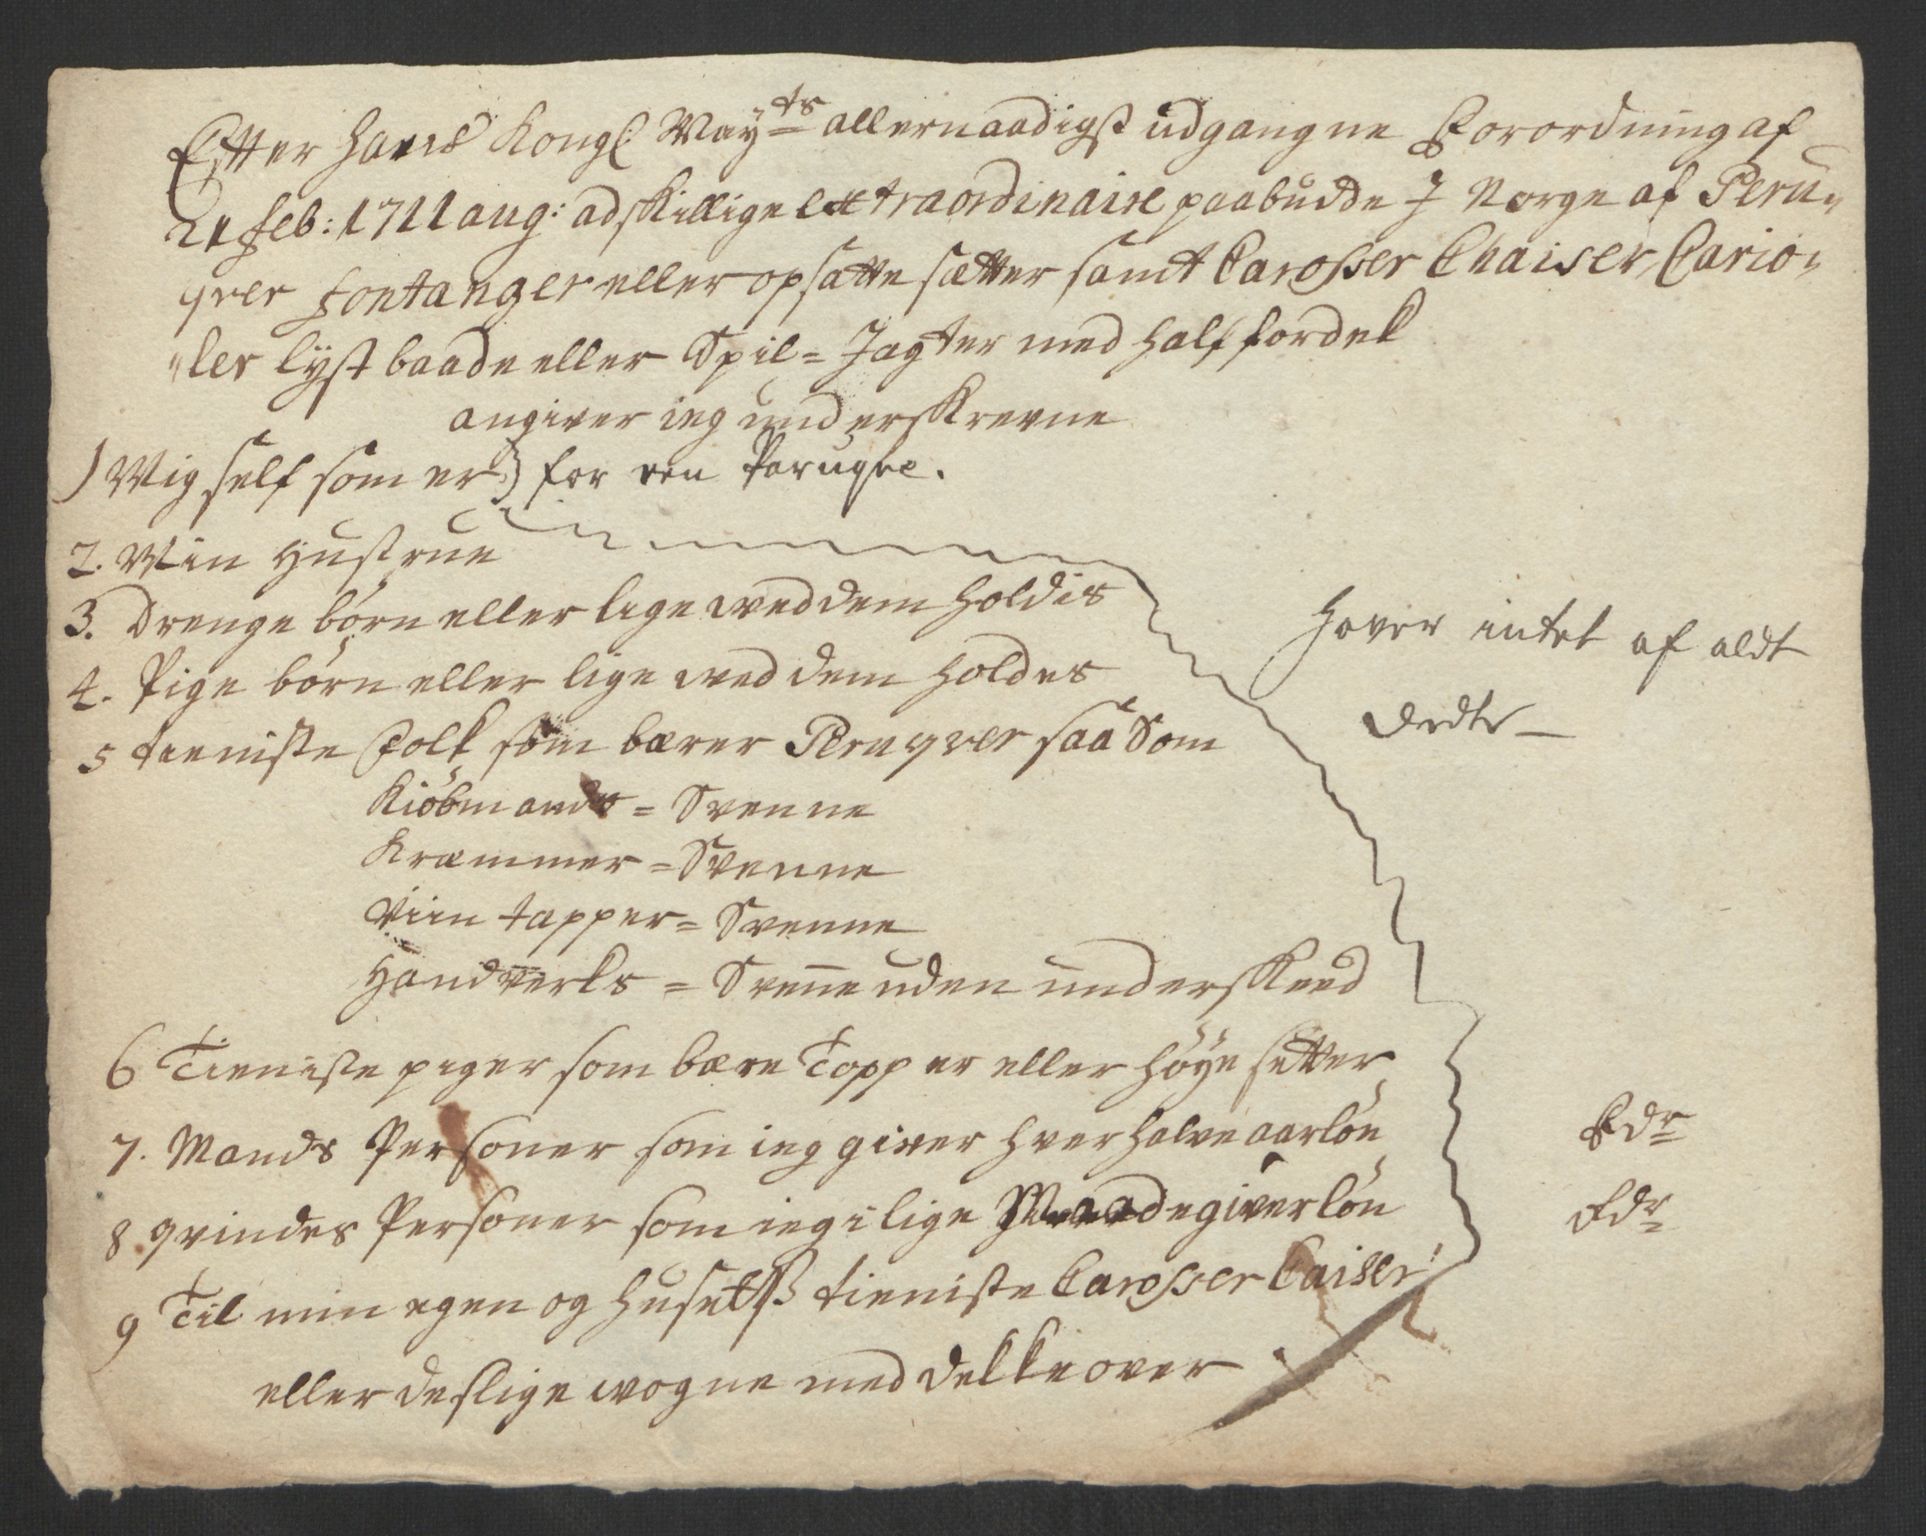 Efter hans Kongl May<sup>ts</sup> allernaadigst udgangne Forordning af
21 feb: 1711 ang: adskillige extraordinaire paabudde J Norge af Peru-
qver fontanger eller opsatte sætter samt Carosser Chaiser, Cario-
ler lyst baade eller Spil = Jagter med half fordek
angiver ieg underskrevne
1) Mig self som er } for een Paruqve.
2. Min Hustrue
3. Drenge börn eller lige wed dem holdis
4. Pige börn eller lige wed dem holdes
5 tieniste Folk som bærer Peruqver saa som
Kiöbmands = Svenne
Kræmmer = Svenne
Viin tapper = Svenne
Handverks = Svenne uden underskeed
6 Tieniste piger som bære Topper eller höye setter
hawer intet af aldt
dedte
7. Mands Personer som ieg giver hver halve aar lön
8 qvindes Personer som ieg i lige Maade giver lön
9 Til min egen og husetß tieniste Carosser Caiser
eller deslige wogne med dekke over